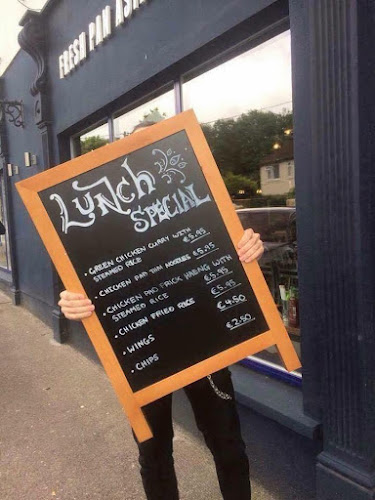 FRESH PAN ASI
LUNCH
SPECIAL
• GREEN CHICKEN CURRY WITH
STEAMED RICE €5.95
• CHICKEN PAD THAI NOODLES €5.95
• CHICKEN PAD PRICK HABANG WITH
STEAMED RICE €5.95
• CHICKEN FRIED RICE €5.95
• WINGS €4.50
• CHIPS €2.50